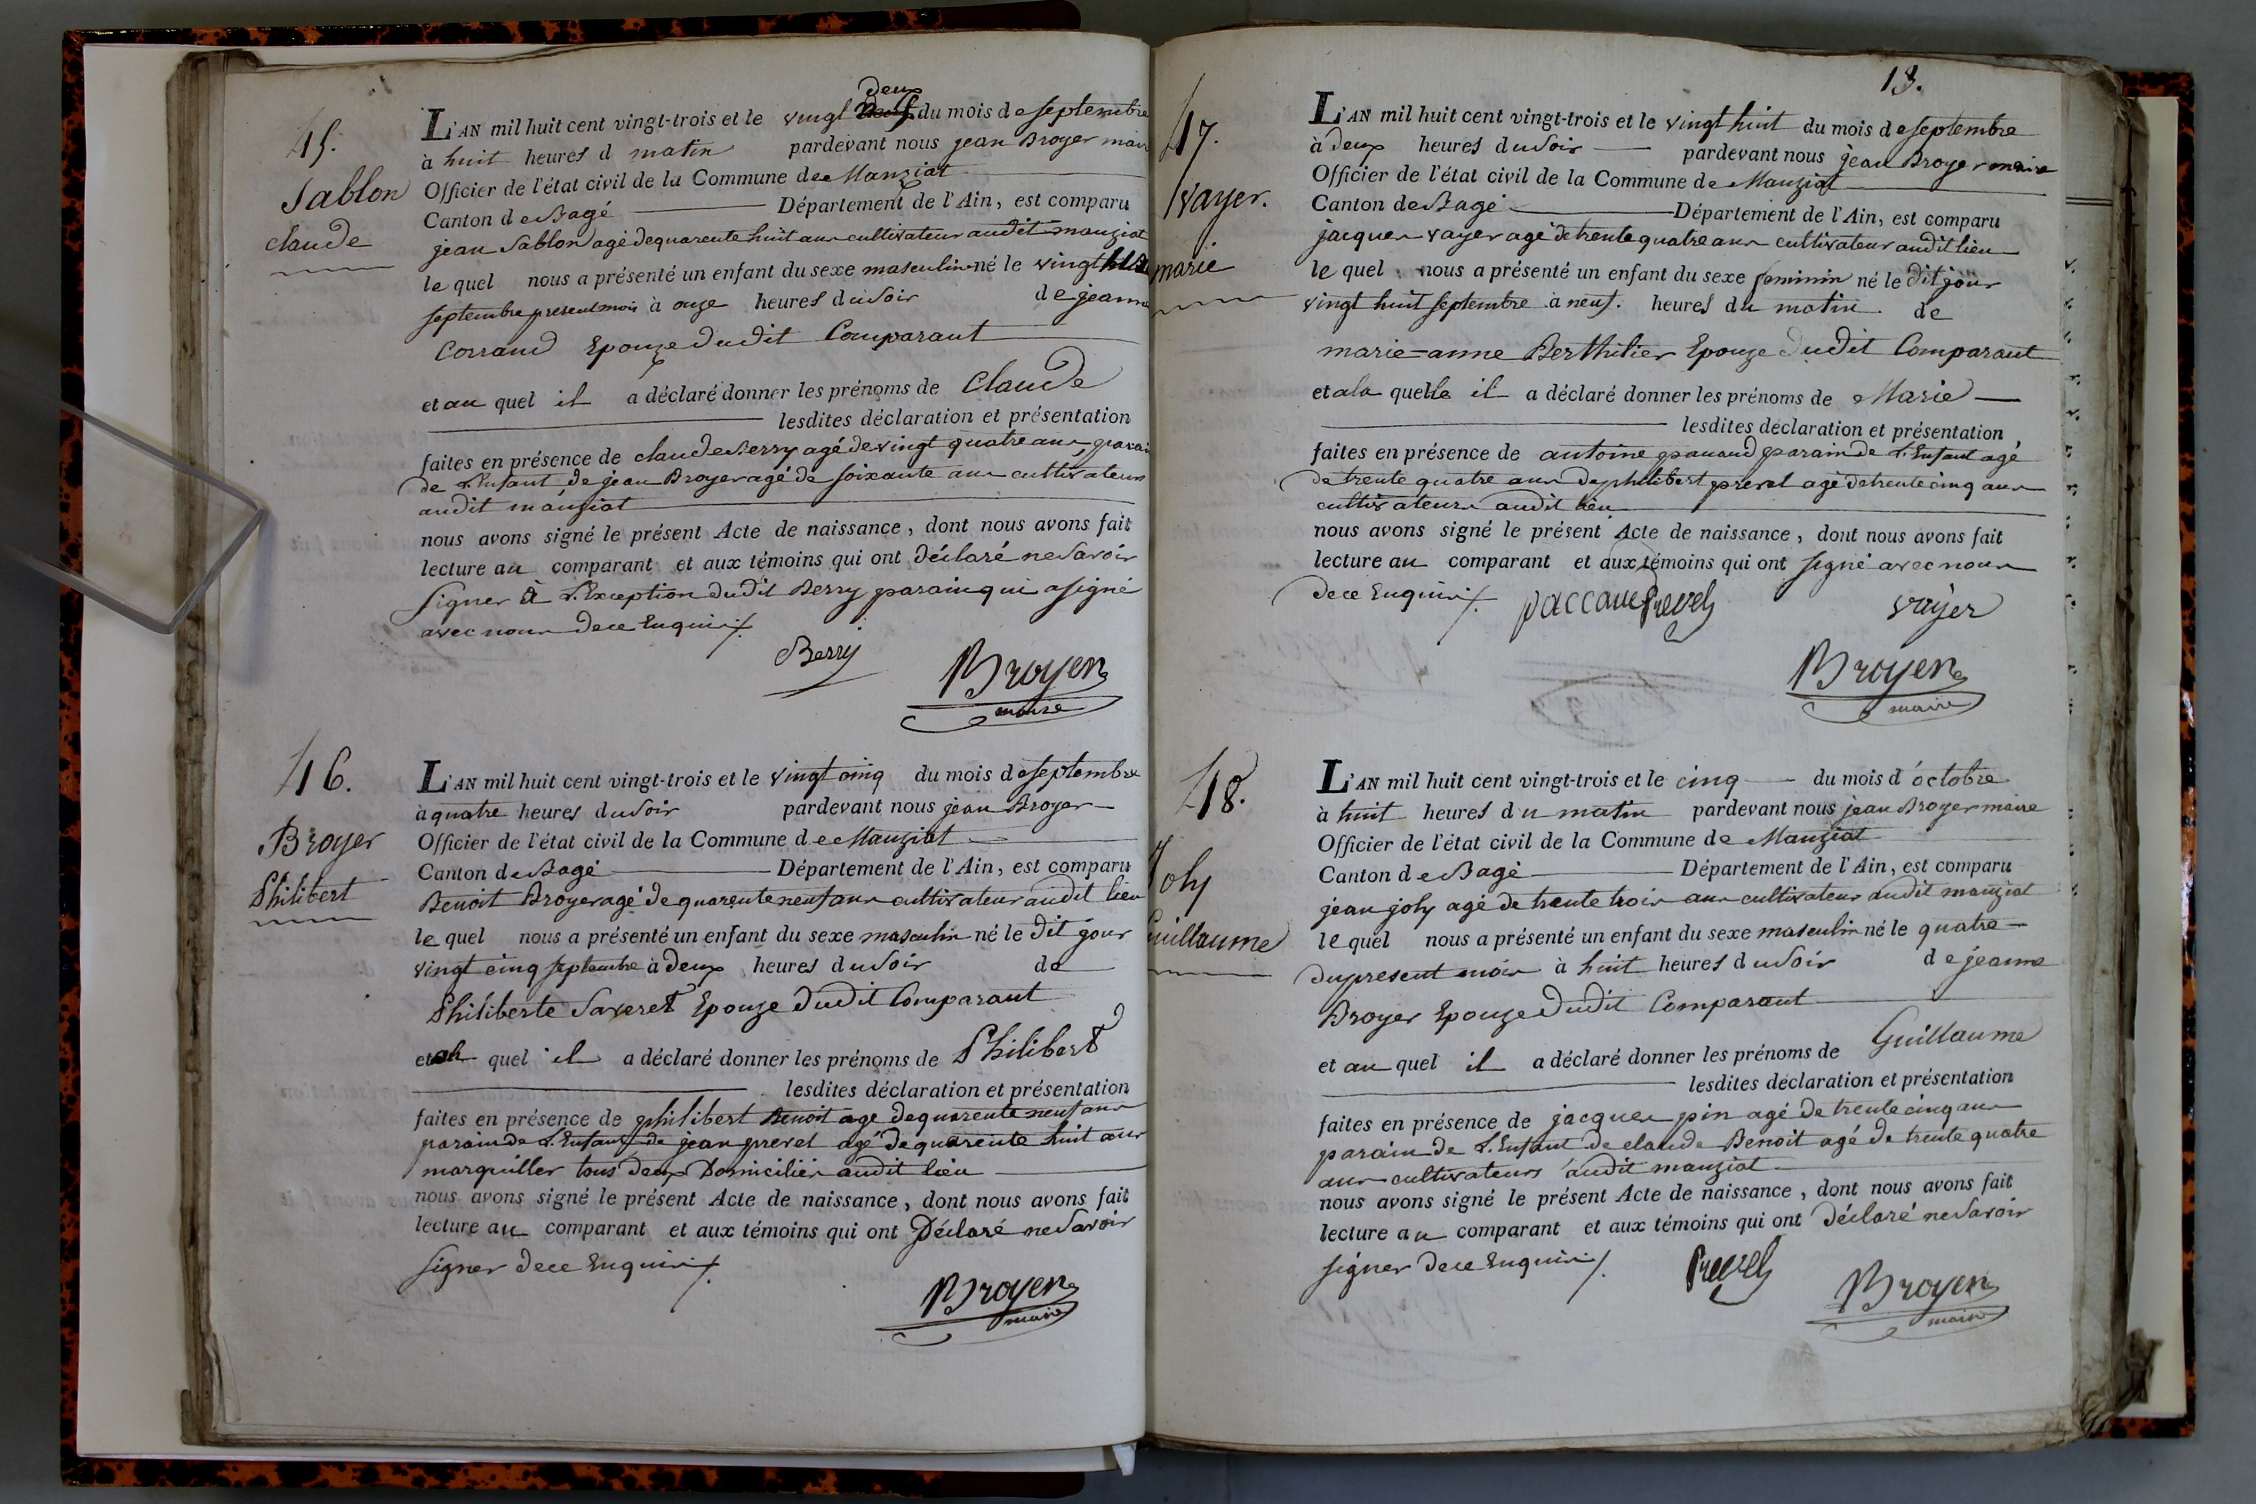 45.
Sablon
claude
L'AN mil huit cent vingt-trois et le vingt deux du mois de septembre
à huit heures d matin pardevant nous jean Broyer maire
Officier de l'état civil de la Commune de Manziat
Canton de Bagé Département de l'Ain, est comparu
jean Sablon agé de quarente huit ans cultivateur audit manziat
le quel nous a présenté un enfant du sexe masculin né le vingt
septembre present mois à onze heures du soir de jeanne
Corrand Epouze dudit Comparant
et au quel il a déclaré donner les prénoms de Claude
lesdites déclaration et présentation
faites en présence de claude Berry agé de vingt quatre ans parain
de L'Enfant, de jean Broyer agé de soixante ans cultivateurs
audit manziat
nous avons signé le présent Acte de naissance, dont nous avons fait
lecture au comparant et aux témoins qui ont déclaré ne savoir
signer à L'Exception dudit Berry parain qui a signé
avec nous de ce Enquis ./.
Berry
Broyer
maire
46.
Broyer
Philibert
L'AN mil huit cent vingt-trois et le vingt cinq du mois de septembre
à quatre heures du soir pardevant nous jean Broyer
Officier de l'état civil de la Commune de Manziat
Canton de Bagé Département de l'Ain, est comparu
Benoit Broyer agé de quarente neuf ans cultivateur audit lieu
le quel nous a présenté un enfant du sexe masculin né le dit jour
vingt cinq septembre à deux heures du soir de
Philiberte Saveret Epouze dudit Comparant
et au quel il a déclaré donner les prénoms de Philibert
lesdites déclaration et présentation
faites en présence de philibert Benoit age de quarente neuf ans
parain de L'Enfant, de jean prevel agé de quarente huit ans
marguiller tous deux Domiciliés audit lieu
nous avons signé le présent Acte de naissance, dont nous avons fait
lecture au comparant et aux témoins qui ont Déclaré ne savoir
signer de ce Enquis ./.
Broyer
maire
13.
47.
vayer.
marie
L'AN mil huit cent vingt-trois et le vingt huit du mois de septembre
à deux heures du soir pardevant nous jean Broyer maire
Officier de l'état civil de la Commune de Manziat
Canton de Bagé Département de l'Ain, est comparu
jacques vayer agé de trente quatre ans cultivateur audit lieu
le quel nous a présenté un enfant du sexe feminin né le dit jour
vingt huit septembre à neuf. heures du matin. de
marie=anne Berthilier Epouze dudit Comparant
et a la quelle il a déclaré donner les prénoms de Marie
lesdites déclaration et présentation
faites en présence de antoine pauaud parain de L'Enfant agé
de trente quatre ans de philibert prevel agé de trente cinq ans
cultivateurs audit lieu
nous avons signé le présent Acte de naissance, dont nous avons fait
lecture au comparant et aux témoins qui ont signé avec nous
de ce Enquis ./.
paccaud Prevel vayer
Broyer
maire
48.
Joly
Guillaume
L'AN mil huit cent vingt-trois et le cinq du mois d'octobre
à huit heures du matin pardevant nous jean Broyer maire
Officier de l'état civil de la Commune de Manziat
Canton de Bagé Département de l'Ain, est comparu
jean joly agé de trente trois ans cultivateur audit manziat
le quel nous a présenté un enfant du sexe masculin né le quatre
du present mois à huit heures du soir de jeanne
Broyer Epouze dudit Comparant
et au quel il a déclaré donner les prénoms de Guillaume
lesdites déclaration et présentation
faites en présence de jacques pin agé de trente cinq ans
parain de L'Enfant de claude Benoit agé de trente quatre
ans cultivateurs audit manziat
nous avons signé le présent Acte de naissance, dont nous avons fait
lecture au comparant et aux témoins qui ont déclaré ne savoir
signer de ce Enquis ./.
Prevel
Broyer
maire